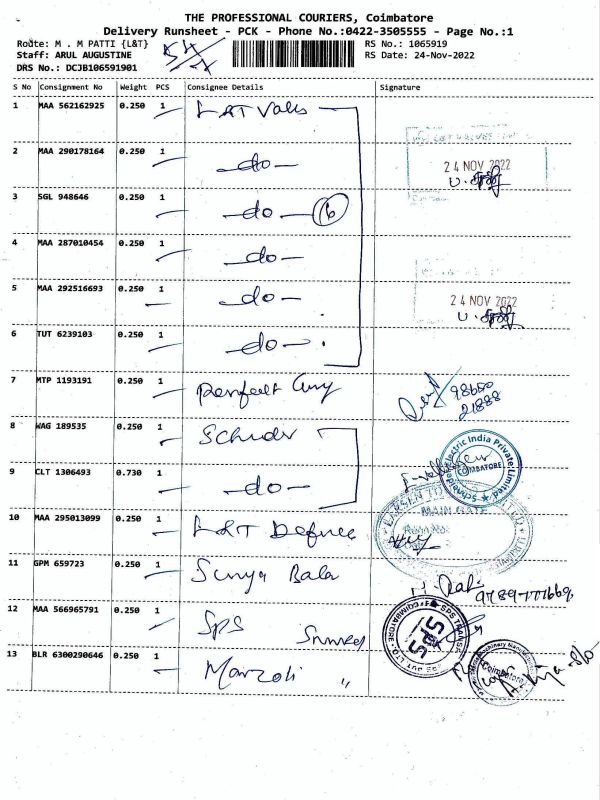 THE PROFESSIONAL COURIERS, Coimbatore
Delivery Runsheet - PCK - Phone No.:0422-3505555 - Page No.:1
Route: M . M PATTI {L&T}
RS No.: 1065919
Staff: ARUL AUGUSTINE
RS Date: 24-Nov-2022
DRS No.: DCJB106591901
S No Consignment No Weight PCS Consignee Details Signature
1 MAA 562162925 0.250 1 L&T Valves
2 MAA 290178164 0.250 1 -do-
24 NOV 2022
3 SGL 948646 0.250 1 -do- 6
4 MAA 287010454 0.250 1 -do-
5 MAA 292516693 0.250 1 -do-
24 NOV 2022
6 TUT 6239103 0.250 1 -do-
7 MTP 1193191 0.250 1 Perfect
98650
21888
8 WAG 189535 0.250 1
COIMBATORE
9 CLT 1306493 0.730 1 -do-
MAIN GATE
10 MAA 295013099 0.250 1 L&T Defence
11 GPM 659723 0.250 1 Surya Bala
12 MAA 566965791 0.250 1 SPS
SPS
13 BLR 6300290646 0.250 1
Coimbatore